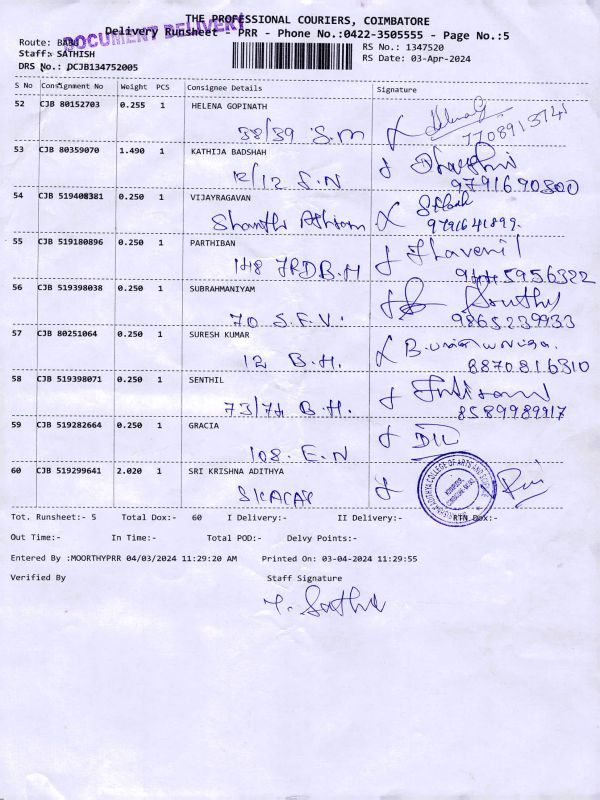 THE PROFESSIONAL COURIERS, COIMBATORE
DOCUMENT DELIVERY
Delivery Runsheet - PRR - Phone No.:0422-3505555 - Page No.:5
Route: BABU
RS No.: 1347520
Staff: SATHISH
RS Date: 03-Apr-2024
DRS No.: DCJB134752005
S No Consignment No Weight PCS Consignee Details Signature
52 CJB 80152703 0.255 1 HELENA GOPINATH
38/39 S.M
7708913741
53 CJB 80359070 1.490 1 KATHIJA BADSHAH
12/12 S.N
9791690800
54 CJB 519408381 0.250 1 VIJAYRAGAVAN
Shanthi Ashram 9791641899
55 CJB 519180896 0.250 1 PARTHIBAN
148 TRDB.H
56 CJB 519398038 0.250 1 SUBRAHMANIYAM
70 S.F.V. 9865239933
57 CJB 80251064 0.250 1 SURESH KUMAR
12 B.H. 8870816310
58 CJB 519398071 0.250 1 SENTHIL
73/74 B.H. 8589989917
59 CJB 519282664 0.250 1 GRACIA
108. E.N
60 CJB 519299641 2.020 1 SRI KRISHNA ADITHYA
SKACAS
Tot. Runsheet:- 5 Total Dox:- 60 I Delivery:- II Delivery:- RTN Dox:-
Out Time:- In Time:- Total POD:- Delvy Points:-
Entered By :MOORTHYPRR 04/03/2024 11:29:20 AM Printed On: 03-04-2024 11:29:55
Verified By Staff Signature